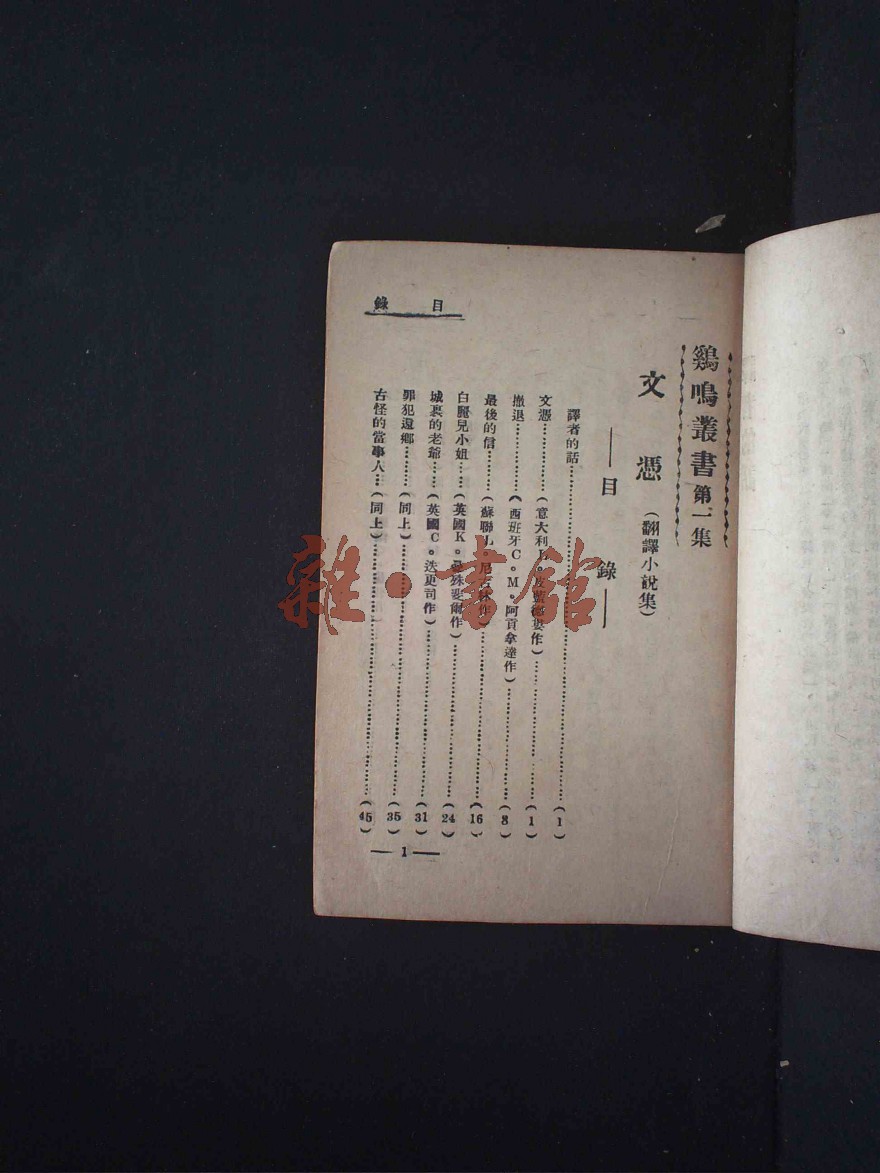 鷄鳴叢書第一集
文憑(翻譯小說集)
——目錄——
譯者的話…………(1)
文憑…………(意大利L。皮藍德婁作)…………(1)
撤退…………(西班牙C。M。阿貢拿達作)…………(8)
最後的信…………(蘇聯L。尼古林作)…………(16)
白麗兒小姐……(英國K。曼殊斐爾作)…………(24)
城裏的老爺……(英國C。迭更司作)…………(31)
罪犯還鄉………(同上)…………(35)
古怪的當事人…(同上)…………(45)
目錄
— 1 —
雜·書館